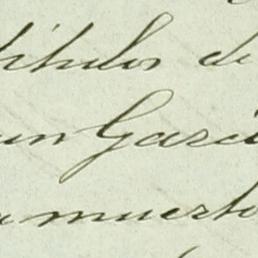 títulos de
un Garci
a muerto